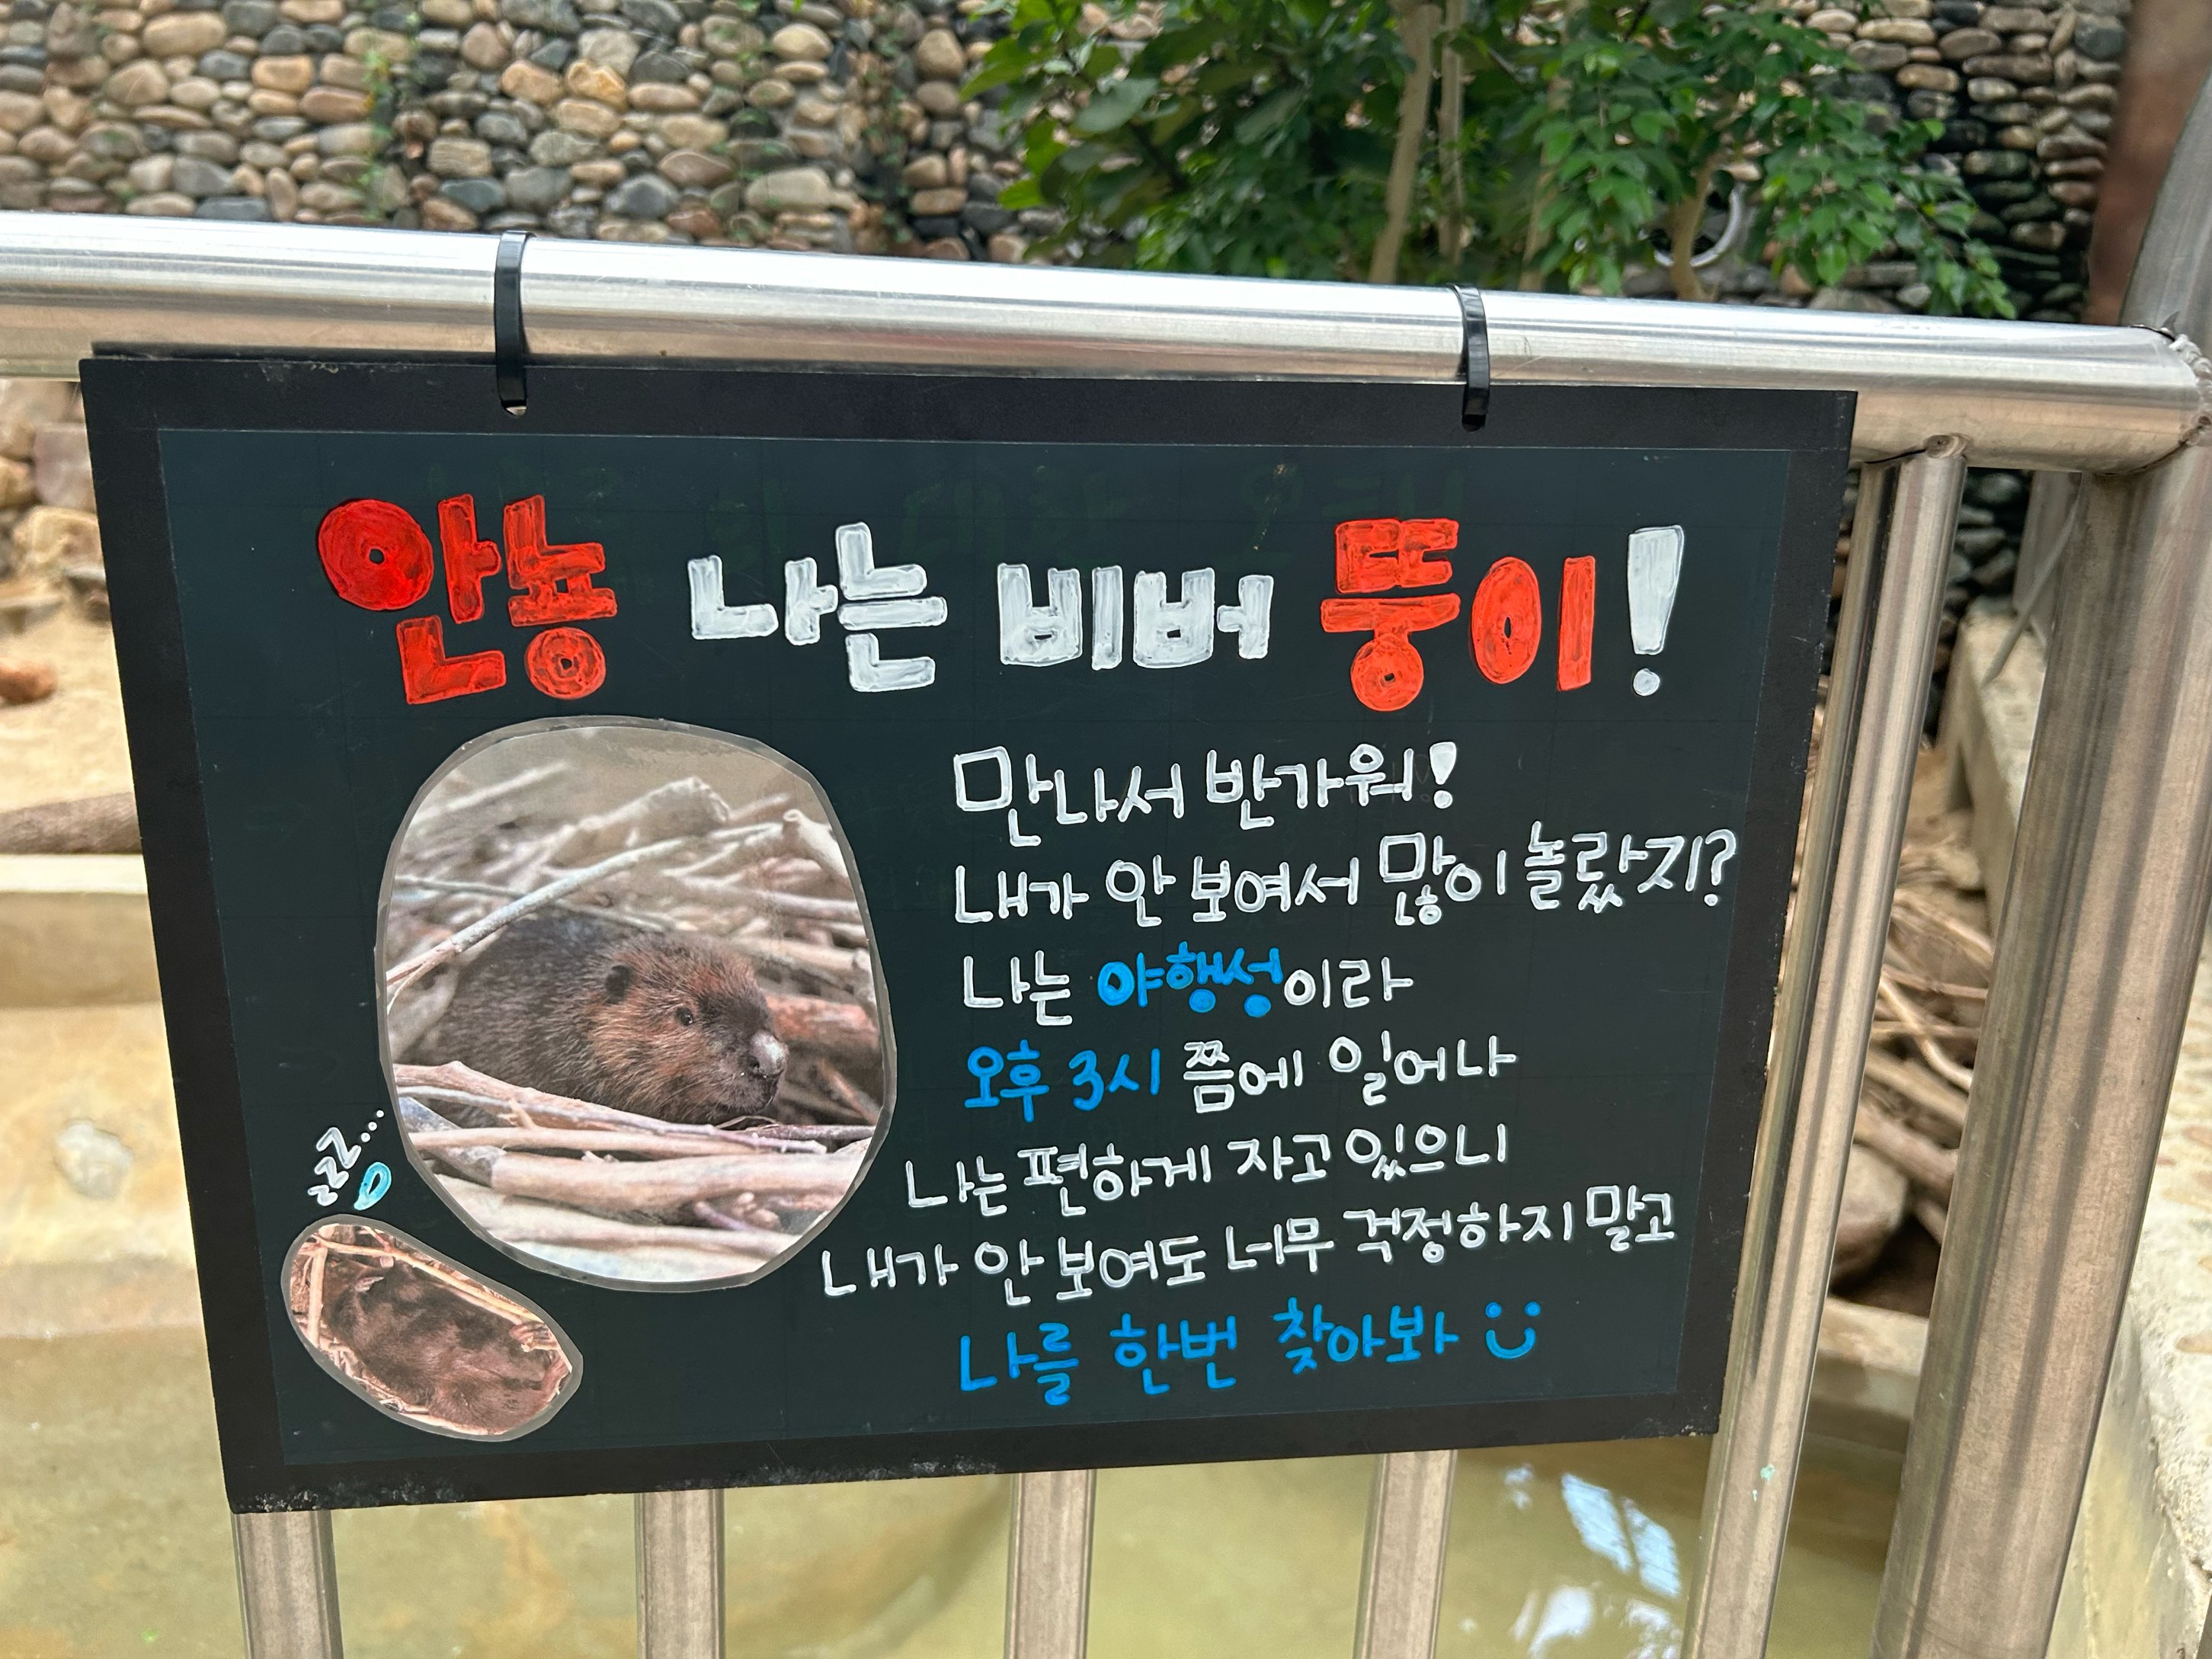 안뇽 나는 비버 뚱이!
만나서 반가워!
내가 안 보여서 많이 놀랐지?
나는 야행성이라
오후 3시 쯤에 일어나
나는 편하게 자고 있으니
내가 안 보여도 너무 걱정하지 말고
나를 한번 찾아봐
zzz...